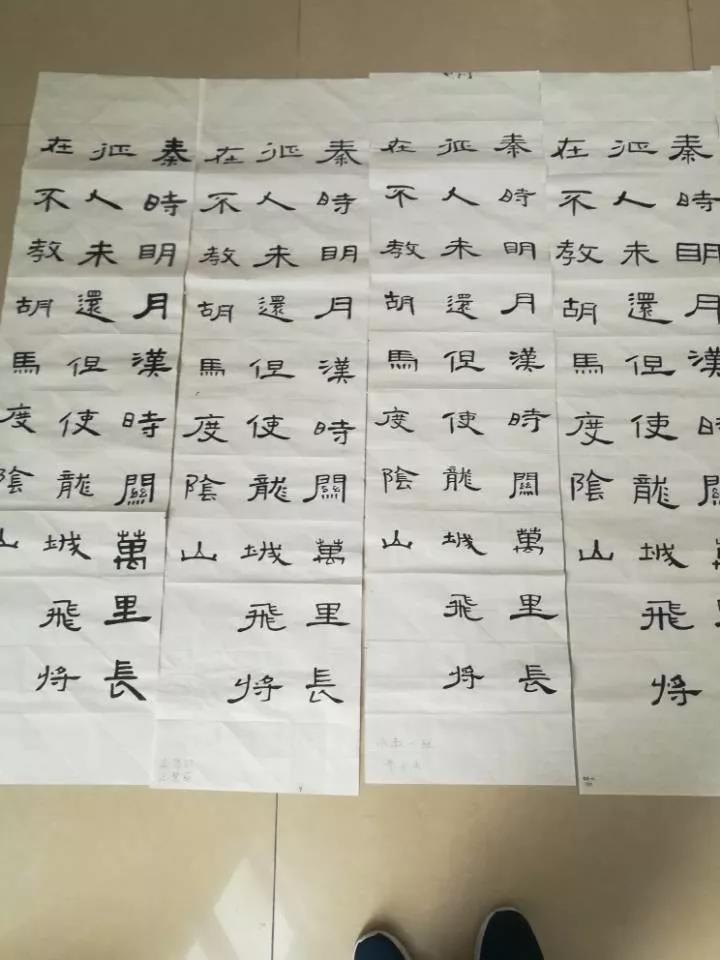 秦時明月漢時關萬里
征人未還但使龍城飛將
在不教胡馬度陰山
秦時明月漢時關萬里長
征人未還但使龍城飛將
在不教胡馬度陰山
秦時明月漢時關萬里長
征人未還但使龍城飛將
在不教胡馬度陰山
秦時明月漢時關萬里長
征人未還但使龍城飛將
在不教胡馬度陰山